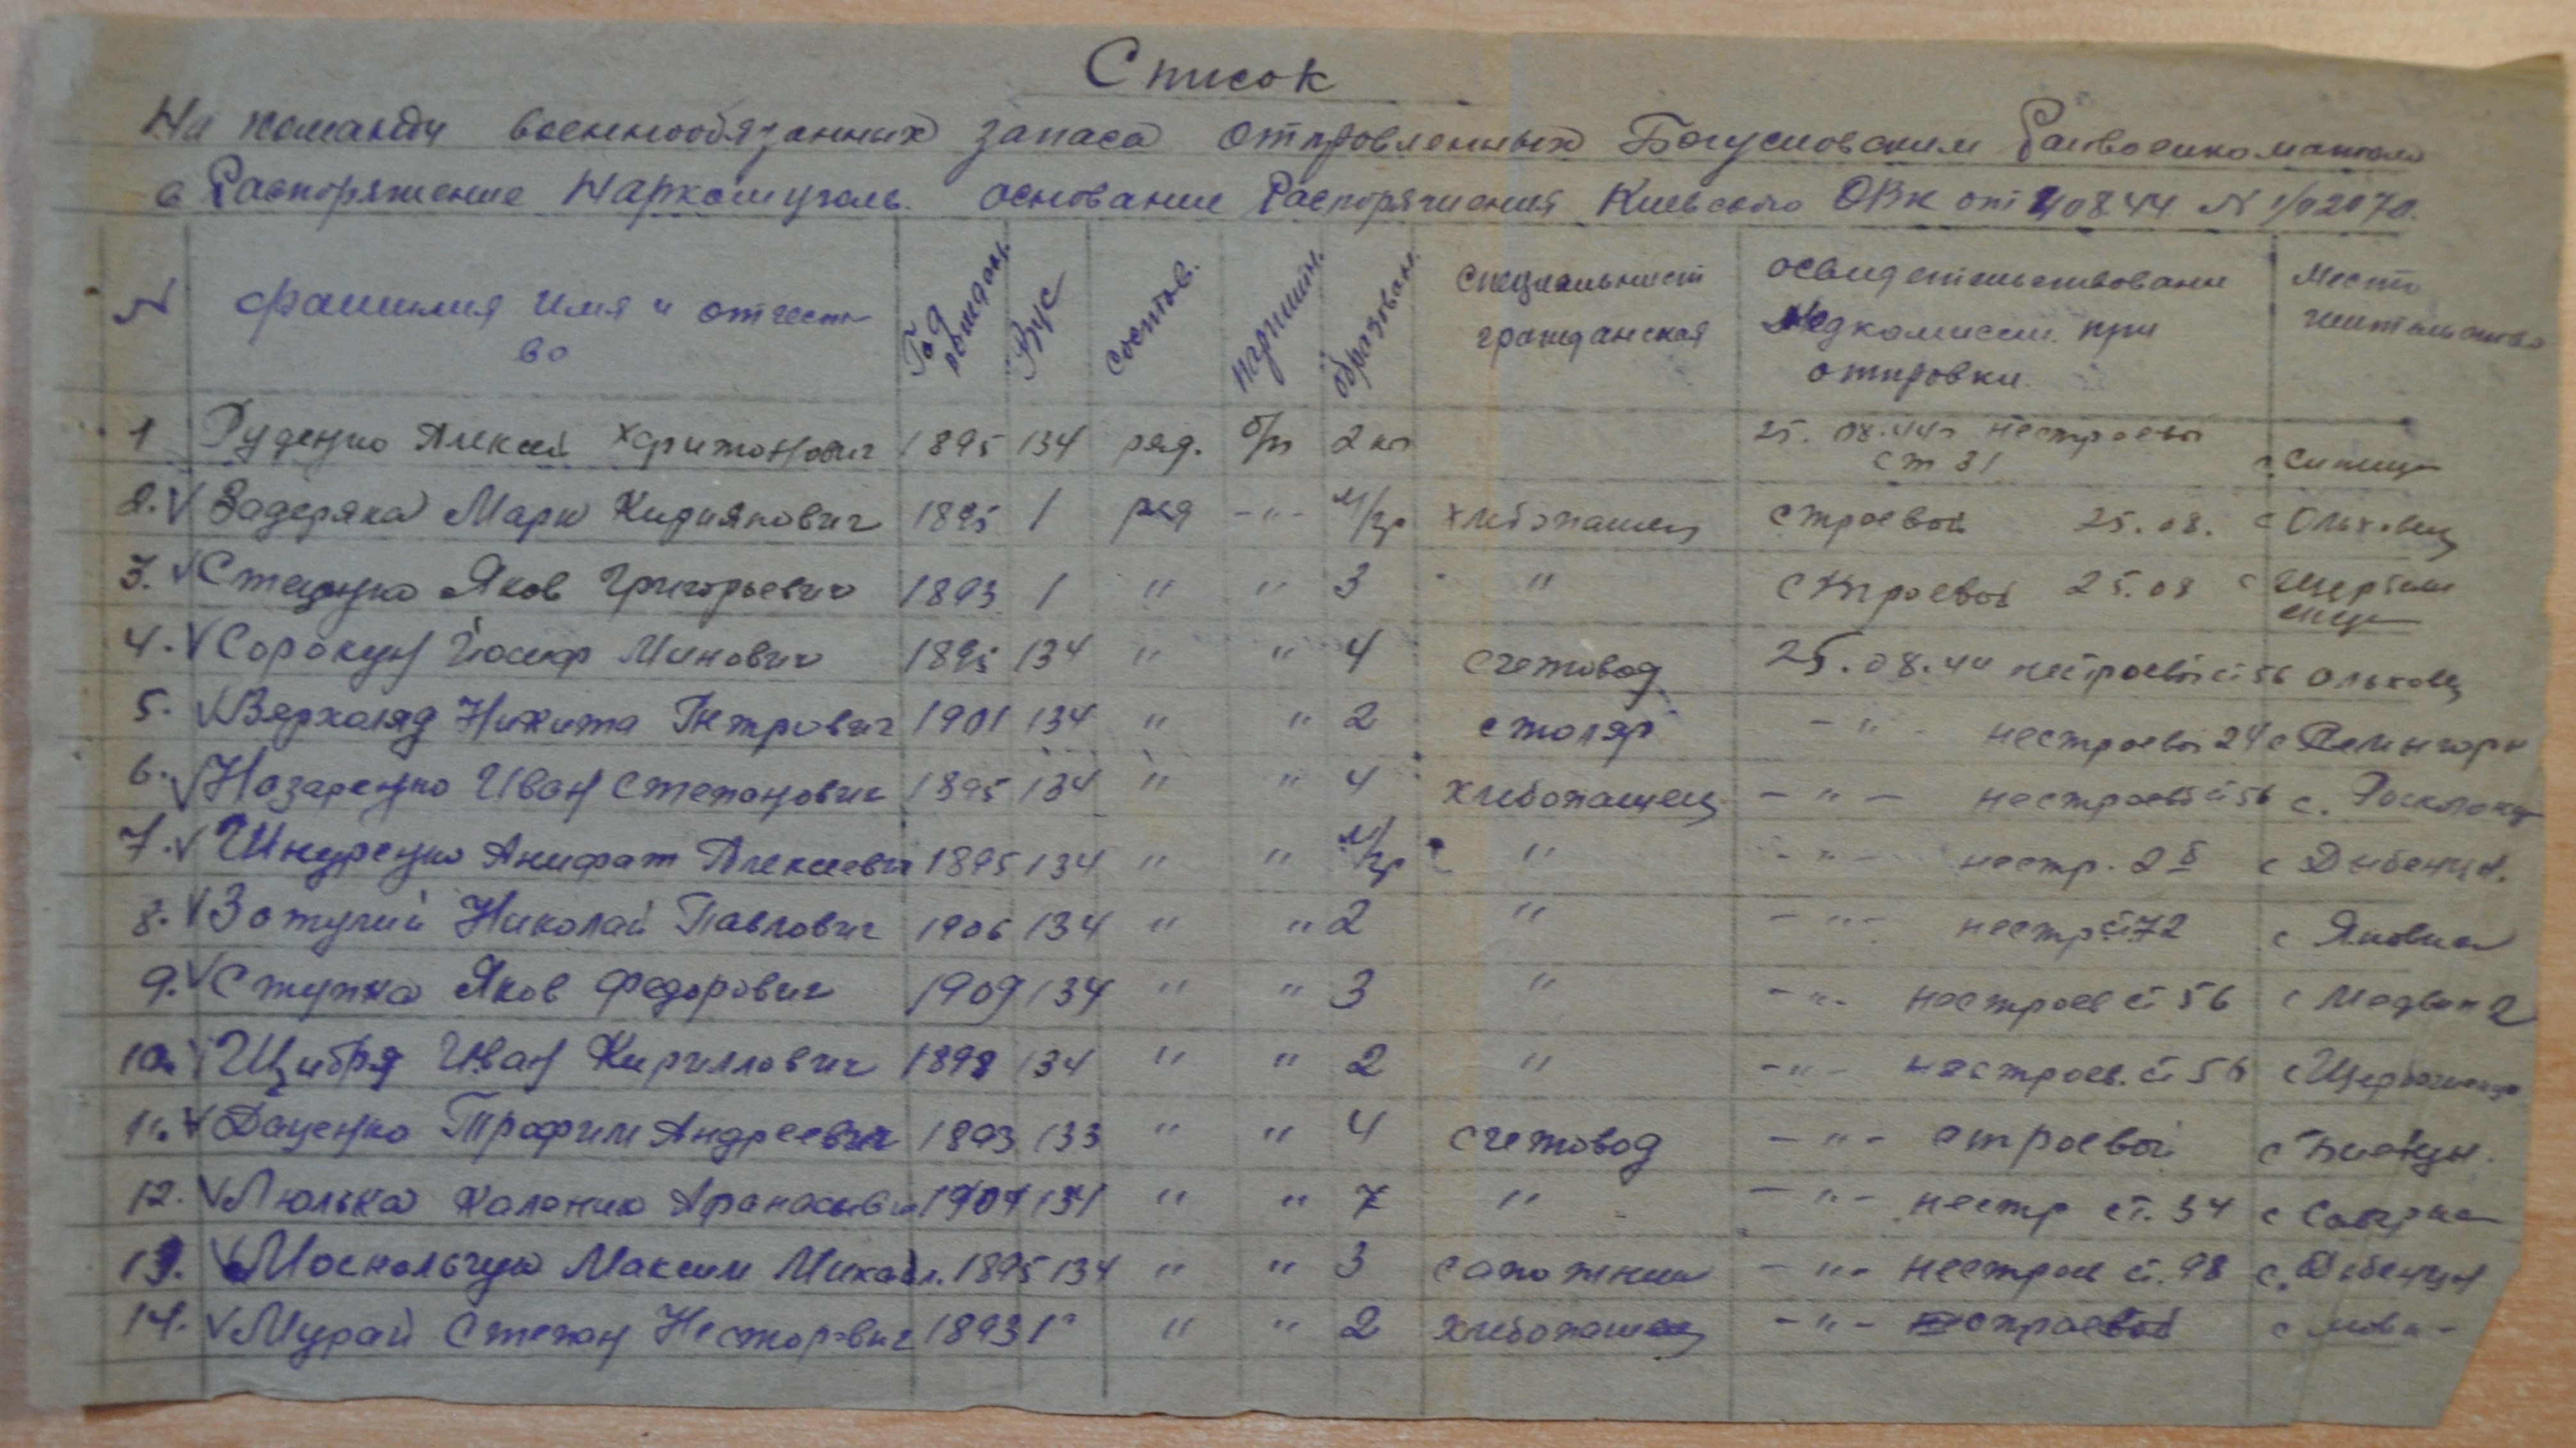 Список
На команду военнообязанных запаса отправленных Богуславским Райвоенкоматом
в Распоряжение Наркомуголь. основание Распоряжения Киевского ОВК от 08.44 N 1/02070.
N Фамилия имя и отчест- Год рождон. Вус состов. партийн. образован. специальност освидетельствовани Место
во гражданская Медкомисси. при жительства
отправки.
1 Руденко Алексей Харитонович 1895 134 ряд. б/п 2 кл 25. 08.44г нестроевой ст 31 с. Синица
2. V Задеряка Марк Кириянович 1895 1 ряд -"- м/гр хлибопашец строевой 25.08. с Ольховец
3. V Стеценко Яков Григорьевич 1893 1 " " 3 " строевой 25.08 с Щербаш
енци
4. V Сорокун Йосиф Минович 1895 134 " " 4 счетовод 25.08.44 нестроевой ст 56 Ольховец
5. V Верхоляд Никита Петрович 1901 134 " " 2 столяр -"- нестроевой 24 с
6. V Назаренко Иван Степанович 1895 134 " " 4 хлибопашец -"- нестроевой ст 56 с.
7. V Шндренко Алексеевич 1895 134 " " м/гр " -"- нестр. 2 с Дыбенци.
8. V Николай Павлович 1906 134 " " 2 " -"- нестр ст 72 с Яновка
9. V Ступка Яков Федорович 1909 134 " " 3 " -"- нестроев ст 56 с Медвин 2
10. Щибря Иван Кириллович 1898 134 " " 2 " -"- нестроев. ст 56 с Щербашенци
11. V Даценко Трофим Андреевич 1893 133 " " 4 счетовод -"- строевой с
12. V Люлька Каленик Афанасьеви 134 " " 7 " -"- нестр ст. 34 с
13. V Москальчук Максим Михайл. 1895 134 " " 3 сапожник -"- нестрое ст. 98 с. Дибенци
14. V Мурай Степан Несторович 1893 1 " " 2 хлибопашец -"- строевой с